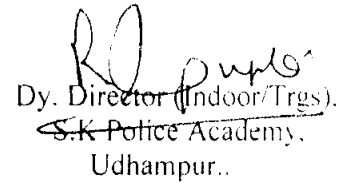 Dy. Director (Indoor/Trgs),
S.K Police Academy,
Udhampur..